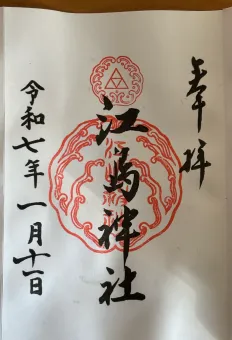 奉拝
江島神社
令和七年一月十一日